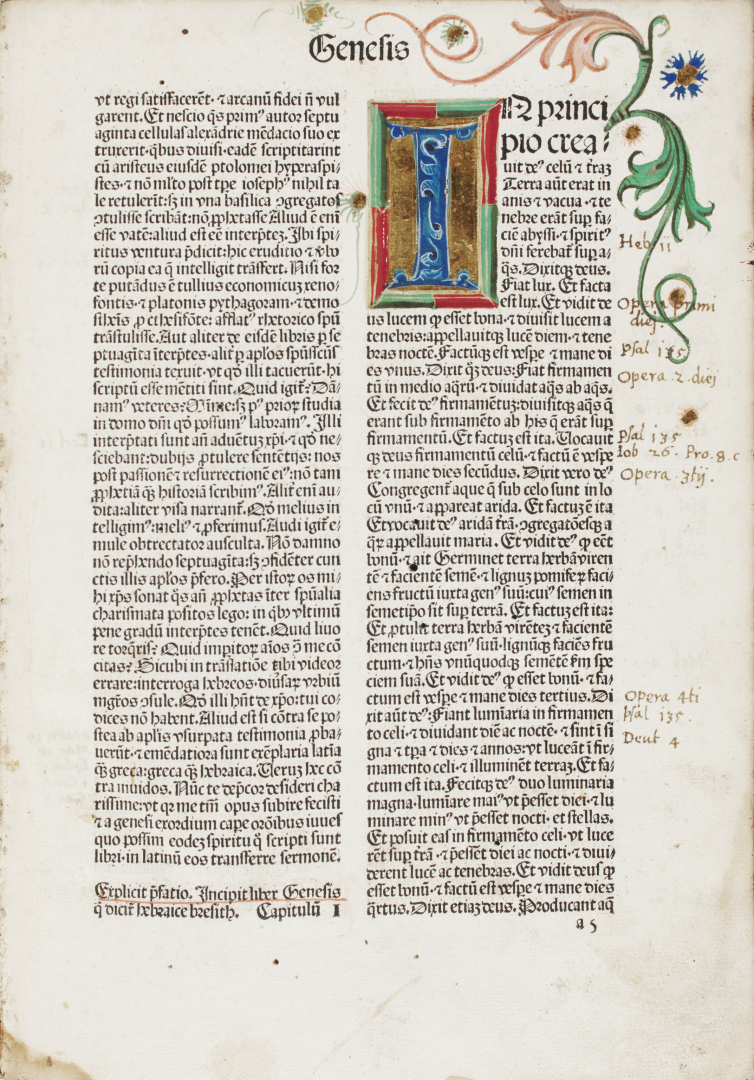 Genesis
vt regi satiffacerēt · ⁊ arcanū fidei ñ vul
garent. Et nescio q̄s prim⁹ autor septu
aginta cellulas alexādrie mēdacio suo ex
truxerit · qͥbus diuisi · eadē scriptitarint
cū aristeus eiusdē ptolomei hyperaspi⸗
stes · ⁊ nō ml̓to post tp̄e ioseph⁹ nihil ta
le retulerūt: sꝫ in vna basilica ꝯgregatos
ꝯtulisse scribāt: nō ꝓphetasse Aliud ē eni
esse vatē: aliud est eē interp̄tez. Ibi spi⸗
ritus ventura p̄dicit: hic eruditio ⁊ v̓bo
rū copia ea q̄ intelligit trāsfert. Nisi for
te putādus ē tullius economicuz xeno⸗
fontis · ⁊ platonis pythagoram · ⁊ demo
sthenis ꝓ cthesifonte: afflat⁹ rhetorico spū
trāstulisse. Aut aliter de eisdē libris ꝑ se
ptuagīta īterp̄tes · alit̓ ꝑ aplos spūssctūs
testimonia texuit · vt qd̓ illi tacuerūt: hi
scriptū esse mētiti sint. Quid igit̓: Dā⸗
nam⁹ veteres: Mīme: sꝫ p⁹ prioꝝ studia
in domo dn̄i qd̓ possum⁹ laboram⁹. Illi
interp̄tati sunt añ aduētuz xp̄i · ⁊ qd̓ ne⸗
sciebant: dubijs ꝓtulere sentētijs: nos
post passionē ⁊ resurrectionē ei⁹: nō tam
ꝓphetiā q̄ꝫ historiā scribim⁹. Alit̓ eni au⸗
dita: aliter visa narrant̓. Qd̓ melius in
telligim⁹: meli⁹ ⁊ ꝓferimus. Audi igit̓ e⸗
mule obtrectator ausculta. Nō damno
nōn rep̄hendo septuagīta: sꝫ ꝯfidēter cun
ctis illis aplos p̄fero. Per istoꝝ os mi⸗
hi xp̄s sonat q̄s añ ꝓphetas īter spūalia
charismata positos lego: in qͥb⁹ vltimū
pene gradū interp̄tes tenēt. Quid liuo
re torq̄ris: Quid impitoꝝ aīos ꝯ me cō
citas: Sicubi in trāslatiōe tibi videor
errare: interroga hebreos · diūsaꝝ vrbiū
mgr̄os ꝯsule. Qd̓ illi hn̄t de xp̄o: tui co⸗
dices nō habent. Aliud est si cōtra se po⸗
stea ab aplis vsurpata testimonia ꝓba⸗
uerūt · ⁊ emēdatiora sunt exēplaria latīa
q̄ꝫ greca: greca q̄ꝫ hebraica. Veruz hec cō
tra inuidos. Nūc te dep̄cor desideri cha
rissime: vt qꝛ me tm̄ opus subire fecisti
⁊ a genesi exordium cape orōibus iuues
quo possim eodez spiritu q̄ scripti sunt
libri · in latinū eos transferre sermonē.
Explicit p̄fatio. Incipit liber Genesis
q̄ dicit̓ hebraice bresith. Capitulū I
IN princi
pio crea⸗
uit de⁹ celū ⁊ tr̄aꝫ
Terra aūt erat in
anis ⁊ vacua · ⁊ te
nebre erāt suꝑ fa⸗
ciē abyssi · ⁊ spirit⁹
dn̄i ferebat̓ suꝑ a⸗
q̄s. Dixitqꝫ deus.
Fiat lux. Et facta
est lux. Et vidit de
us lucem ꝙ esset bona · ⁊ diuisit lucem a
tenebris: appellauitqꝫ lucē diem · ⁊ tene
bras noctē. Factūqꝫ est vesꝑe ⁊ mane di
es vnus. Dixit q̄ꝫ deus: Fiat firmamen
tū in medio aq̄ꝝ: ⁊ diuidat aq̄s ab aq̄s.
Et fecit de⁹ firmamētuꝫ: diuisitqꝫ aq̄s q̄
erant sub firmamēto ab his q̄ erāt suꝑ
firmamentū. Et factuꝫ est ita. Vocauit
qꝫ deus firmamentū celū · ⁊ factū ē vesꝑe
re ⁊ mane dies secūdus. Dixit vero de⁹
Congregent̓ aque q̄ sub celo sunt in lo
cū vnū · ⁊ appareat arida. Et factuꝫ ē ita
Et vocauit de⁹ aridā tr̄ā · ꝯgregatōesqꝫ a
q̄ꝝ appellauit maria. Et vidit de⁹ ꝙ eēt
bonū · ⁊ ait Germinet terra herbā viren
tē ⁊ facientē semē · ⁊ lignuꝫ pomifeꝝ faci⸗
ens fructū iuxta gen⁹ suū: cui⁹ semen in
semetip̄o sit suꝑ terrā. Et factuꝫ est ita:
Et ꝓtulit terra herbā virētez · ⁊ facientē
semen iuxta gen⁹ suū · lignūqꝫ faciēs fru
ctum · ⁊ hn̄s vnūquodqꝫ semētē ẜm spe
ciem suā. Et vidit de⁹ ꝙ esset bonū · ⁊ fa⸗
ctum est vesꝑe ⁊ mane dies tertius. Di
xit aūt de⁹: Fiant lumīaria in firmamen
to celi · ⁊ diuidant diē ac noctē · ⁊ sint ī si
gna ⁊ tꝑa ⁊ dies ⁊ annos: vt luceāt ī fir⸗
mamento celi · ⁊ illuminēt terraꝫ. Et fa⸗
ctum est ita. Fecitqꝫ de⁹ duo luminaria
magna · lumīare mai⁹ vt p̄esset diei · ⁊ lu
minare min⁹ vt p̄esset nocti · et stellas.
Et posuit eas in firmamēto celi · vt luce
rēt suꝑ tr̄ā · ⁊ p̄essēt diei ac nocti · ⁊ diui⸗
derent lucē ac tenebras. Et vidit deus ꝙ
esset bonū · ⁊ factū est vesꝑe ⁊ mane dies
q̄rtus. Dixit etiaꝫ deus. Producant aq̄
a 5
Heb 11
Opera primi
diej
Psal 135
Opera 2. diej
Psal 135
Iob 26. Pro. 8. c
Opera 3tij.
Opera 4ti
psal 135.
Deut 4